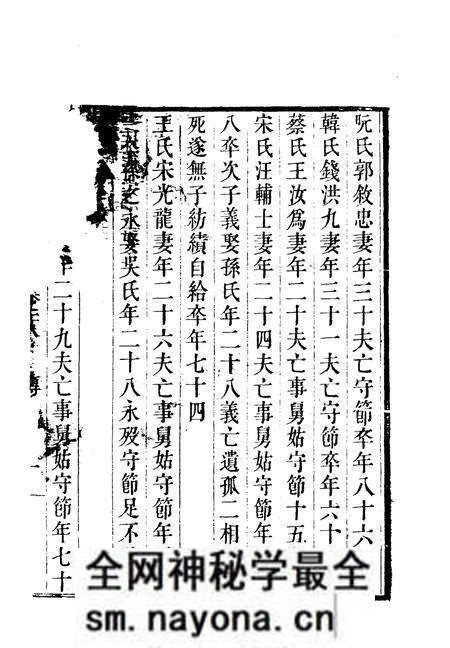 阮氏郭敘忠妻年三十夫亡守節卒年八十六
韓氏錢洪九妻年三十一夫亡守節卒年六十
蔡氏王汝爲妻年二十夫亡事舅姑守節十五
宋氏汪輔士妻年二十四夫亡事舅姑守節年
八卒次子義娶孫氏年二十八義亡遺孤二相
死遂無子紡績自給卒年七十四
王氏宋光龍妻年二十六夫亡事舅姑守節年
永娶吳氏年二十八永歿守節足不
年二十九夫亡事舅姑守節年七十
傳
全网神秘学最全
sm.nayona.cn